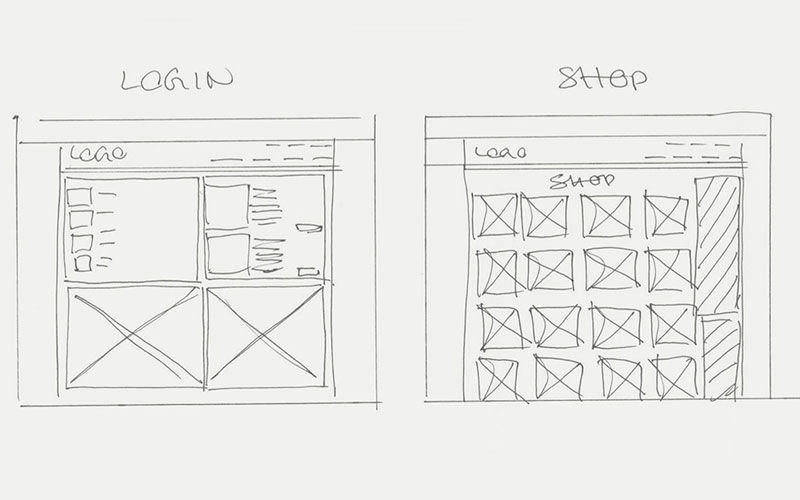 LOGIN
LOGO
SHOP
LOGO
SHOP